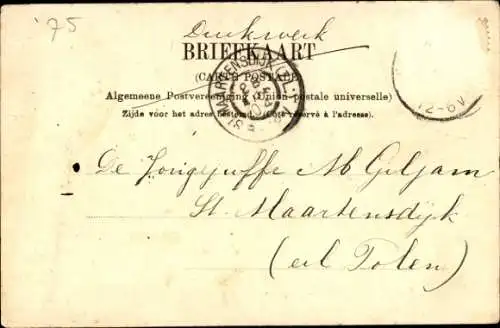 '75
Drukwerk
BRIEFKAART
(CARTE POSTALE)
Algemeene Postvereeniging (Union postale universelle)
Zijde voor het adres bestemd. (Côté réservé à l'adresse).
ST MAARTENSDIJK
12-6V
De Jongejuffr M Geljam
St. Maartensdijk
(eil Tolen)